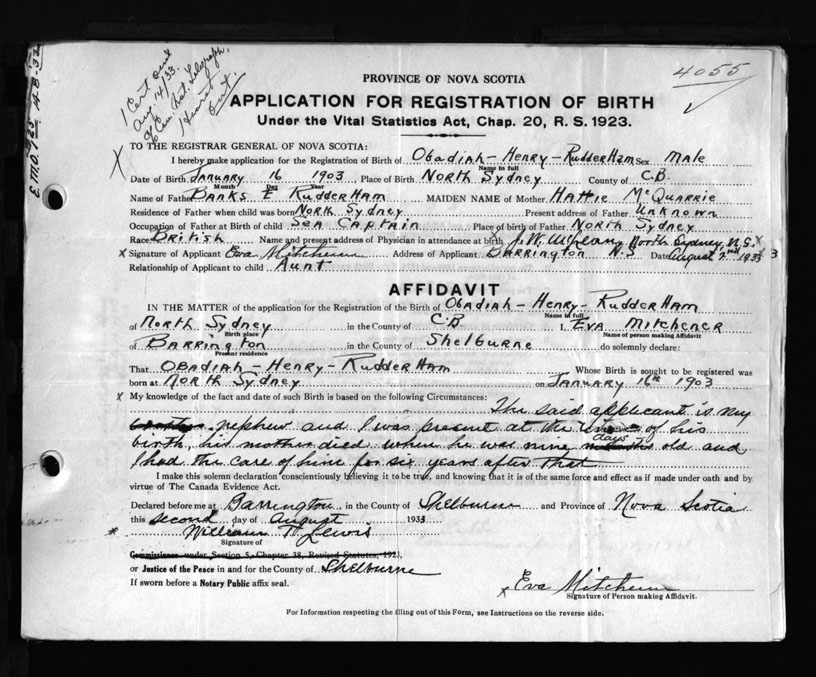 4055
1 Cert out
Aug. 14/33.
PROVINCE OF NOVA SCOTIA
APPLICATION FOR REGISTRATION OF BIRTH
Under the Vital Statistics Act, Chap. 20, R. S. 1923.
TO THE REGISTRAR GENERAL OF NOVA SCOTIA:
I hereby make application for the Registration of Birth of Obadiah-Henry-RudderHam Sex Male
Name in full
Date of Birth January 16 1903 Place of Birth North Sydney County of C.B.
Month Day Year
Name of Father Banks E RudderHam MAIDEN NAME of Mother Hattie McQuarrie
Residence of Father when child was born North Sydney Present address of Father Unknown
Occupation of Father at Birth of child Sea Captain Place of Birth of Father North Sydney
Race British Name and present address of Physician in attendance at birth J. W. North Sydney, N.S.
x Signature of Applicant Eva Address of Applicant Barrington N.S Date August 2nd 1933
Relationship of Applicant to child Aunt
AFFIDAVIT
IN THE MATTER of the application for the Registration of the Birth of Obadiah-Henry-RudderHam
Name in full
of North Sydney in the County of C.B I, Eva Mitchener
Birth place Name of person making Affidavit
of Barrington in the County of Shelburne do solemnly declare:
Present residence
That Obadiah-Henry-RudderHam Whose Birth is sought to be registered was
born at North Sydney on January 16th 1903
x My knowledge of the fact and date of such Birth is based on the following Circumstances:
The said applicant is my
nephew and I was present at the time of his
birth, his mother died when he was nine months days old and
I had the care of him for six years after that
I make this solemn declaration conscientiously believing it to be true, and knowing that it is of the same force and effect as if made under oath and by
virtue of The Canada Evidence Act.
Declared before me at Barrington in the County of Shelburne and Province of Nova Scotia
this second day of August 1933
William H. Lewis
Signature of
Commissioner under Section 5, Chapter 38, Revised Statutes, 1923,
or Justice of the Peace in and for the County of Shelburne
If sworn before a Notary Public affix seal.
x Eva
Signature of Person making Affidavit.
For Information respecting the filling out of this Form, see Instructions on the reverse side.